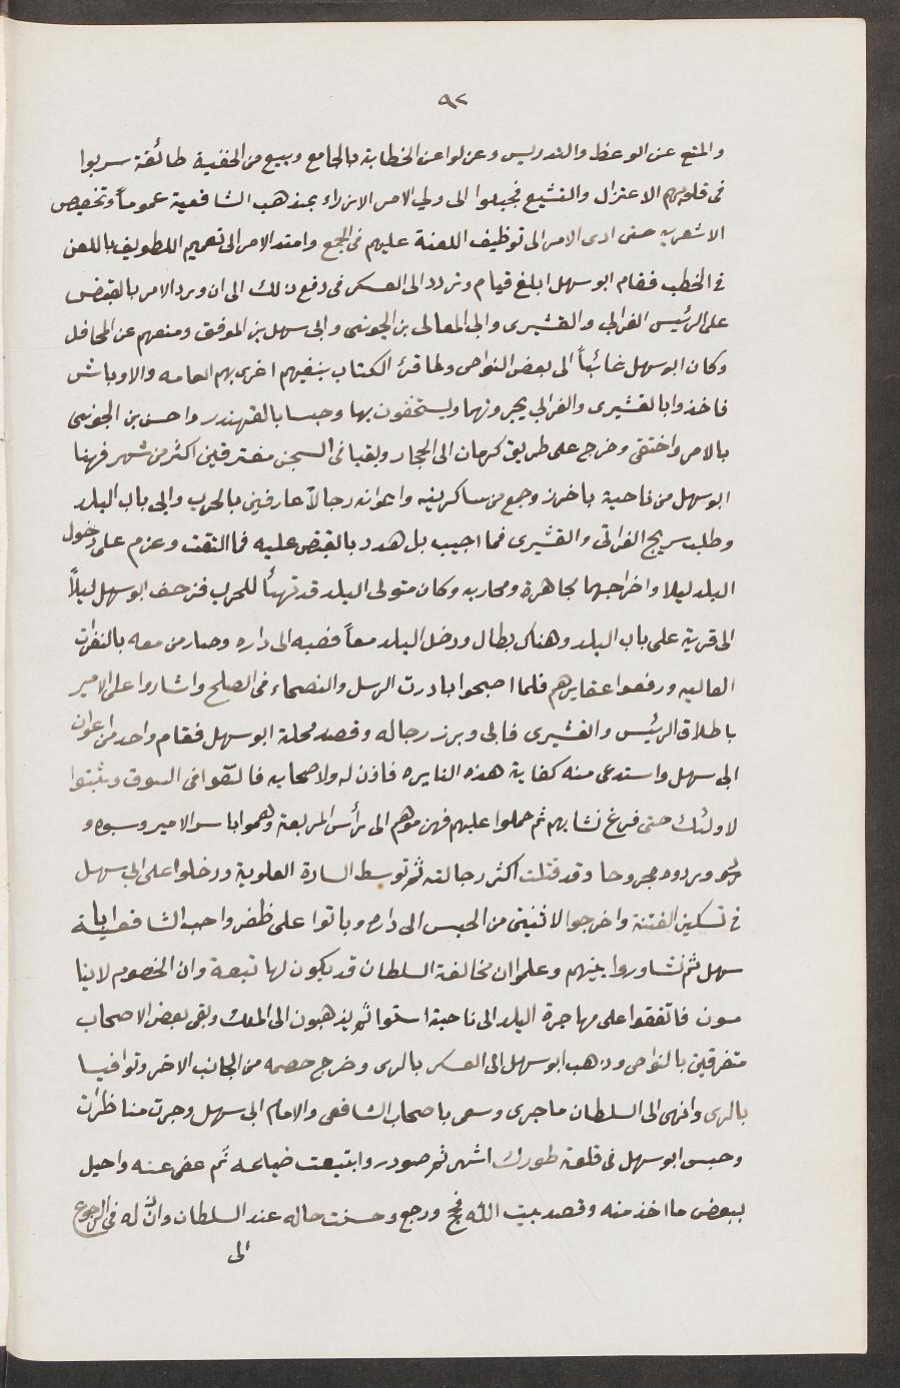 ٩٢
والمنع عن الوعظ والتدريس وعزلوا عن الخطابة بالجامع وبيع من الحنفية طائفة سربوا
فى قلوبهم الاعتزال والتشيع فخيلوا الى ولي الامر الازراء بمذهب الشافعية عموماً وتخصيص
الاشعريه حتى ادى الامر الى توظيف اللعنة عليهم فى الجمع وامتد الامر الى تعميم الطوايف باللعن
فى الخطب فقام ابو سهل ابلغ قيام وتردد الى العسكر فى دفع ذلك الى ان ورد الامر بالقبض
على الرئيس الفراتى والقشيرى وابى المعالى بن الجوينى وابى سهل بن الموفق ومنعهم عن المحافل
وكان ابو سهل غائباً الى بعض النواحى ولما قرئ الكتاب بنفيهم اغرى بهم العامه والاوباش
فاخذوا بالقشيرى والفراتى يجرونهما ويستخفون بهما وحبسا بالقهندر واحس بن الجوينى
بالامر واختفى وخرج على طريق كرمان الى الحجاز وبقيا فى السجن مفترقين اكثر من شهر فهنا
ابو سهل من ناحية باخرز وجمع من شاكرينه واعوانه رجالاً عارفين بالحرب واتى باب البلد
وطلب تسريح الفراتى والقشيرى فما اجيب بل هدد بالقبض عليه فما التفت وعزم على دخول
البلد ليلا واخراجهما مجاهرة ومحاربه وكان متولى البلد قد تهيأ للحرب فزحف ابو سهل ليلاً
الى قرية على باب البلد وهناك بطال ودخل البلد معاً فصبه الى داره وصار من معه بالنفرات
العاليه ورفعوا عقايرهم فلما اصبحوا بادرت الرسل والنصحاء فى الصلح واشاروا على الامير
باطلاق الرئيس والقشيرى فابى وبرز رجاله وقصد محلة ابو سهل فقام واحد من اعوان
ابى سهل واستدعى منه كفاية هذه النايره فاذن له ولاصحابه فالتقوا فى السوق وثبتوا
لاولئك حتى فرغ نشابهم ثم حملوا عليهم فهزموهم الى رأس المربعة وهموا باسر الامير وسبوه و
وردوه مجروحا وقد قتلت اكثر رجالته ثم توسط السادة العلوية ودخلوا على ابى سهل
فى تسكين الفتنة واخرجوا الاثنين من الحبس الى داره وباتوا على ظفر واحب الشافعية ابا
سهل ثم تشاوروا بينهم وعلموا ان مخالفة السلطان قد يكون لها تبعة وان الخصوم لا ينا
مون فاتفقوا على مهاجرة البلد الى ناحية استوا ثم يذهبون الى الملك وبقى بعض الاصحاب
متفرقين بالنواحى وذهب ابو سهل الى العسكر بالرى وخرج خصمه من الجانب الاخر وتوافيا
بالرى وانهى الى السلطان ما جرى وسعى باصحاب الشافعى والامام ابى سهل وجرت مناظرات
وحبس ابو سهل فى قلعة طورك اشهر ثم صودر وابتيعت ضياعه ثم عفى عنه واحيل
ببعض ما اخذ منه وقصد بيت الله فحج ورجع وحسنت حاله عند السلطان واذن له فى الرجوع
الى